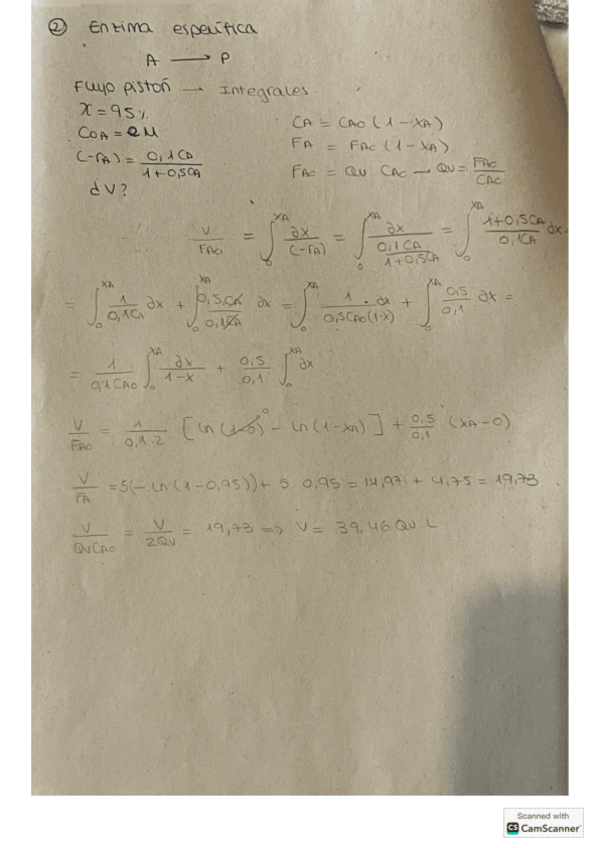 ② Enzima específica
A → P
Flujo pistón → Integrales
X = 95%
C0A = 2M
(-rA) = 0,1CA / 1+0,5CA
¿V?
CA = CAO (1-XA)
FA = FAO (1-XA)
FAO = QV CAO → QV = FAO / CAO
V / FAO = ∫₀^XA ∂x / (-rA) = ∫₀^XA ∂x / (0,1 CA / 1+0,5CA) = ∫₀^XA 1+0,5CA / 0,1CA dx =
= ∫₀^XA 1 / 0,1CA ∂x + ∫₀^XA 0,5CA / 0,1CA ∂x = ∫₀^XA 1 · ∂x / 0,5CAO(1-X) + ∫₀^XA 0,5 / 0,1 ∂x =
= 1 / 0,1 CAO ∫₀^XA ∂x / 1-X + 0,5 / 0,1 ∫₀^XA ∂x
V / FAO = 1 / 0,1·2 [ln (1-0)⁰ - ln (1-XA)] + 0,5 / 0,1 (XA-0)
V / FA = 5(-ln(1-0,95)) + 5·0,95 = 14,97 + 4,75 = 19,73
V / QVCAO = V / 2QV = 19,73 => V = 39,46 QV L
Scanned with
CS CamScanner